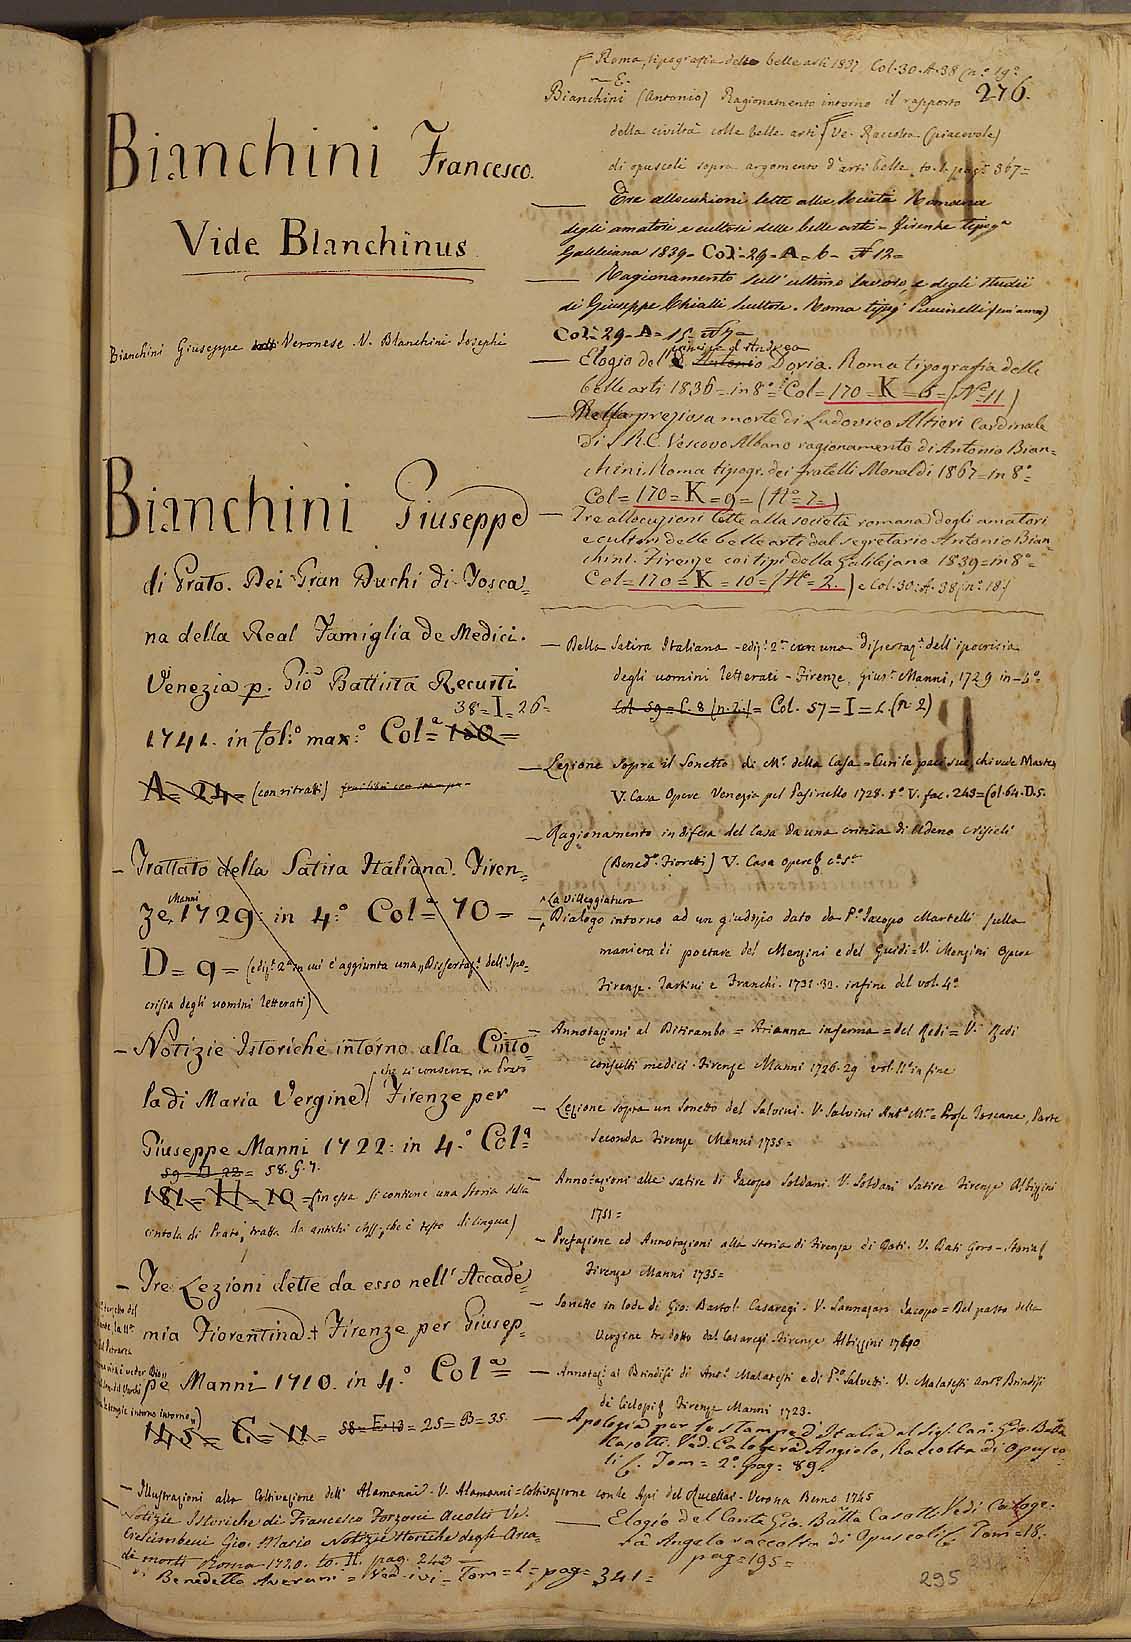 Bianchini Francesco.
Vide Blanchinus
Bianchini Giuseppe Veronese. V. Blanchini Josephi
Bianchini Giuseppe
di Prato. Dei Gran Duchi di Tosca=
na della Real Famiglia de Medici.
Venezia p. Gio Battista Recurti
38=I=26=
1741. in fol.º max.º Colª= 180=
A= 24= (con ritratti)
– Trattato della Satira Italiana. Firen=
Manni
ze 1729: in 4.º Colª= 70=
D= 9= (ediz.e 2ª in cui è aggiunta una Dissertaz.e dell'Ipo=
crisia degli uomini letterati)
– Notizie Istoriche intorno alla Cinto=
che si conserva in Prato
la di Maria Vergine Firenze per
Giuseppe Manni 1722: in 4.º Colª=
59=D.22= 58.G.7.
181=H=10= (in essa si contiene una Storia della
cintola di Prato, tratta da antichi che è testo di lingua)
– Tre Lezioni dette da esso nell'Accade=
mia Fiorentina + Firenze per Giusep=
pe Manni 1710. in 4.º Colª=
145= C= 11= 58=E.13= 25=B=35.
– Illustrazioni alla Coltivazione dell'Alamanni. V. Alamanni=Coltivazione con le Api del Rucellai. Verona Berno 1745
Notizie Istoriche di Francesco Forzoni Accolti Ve.
Crescimbeni Gio. Mario Notizie Istoriche degli Arca=
di morti Roma 1720. to. II. pag. 243 —
di Benedetto Averani = Ved. ivi = Tom=1= pag= 341=
Roma, tipografia delle belle arti 1837. Col.30.A.38 (nº 19º
276.
Bianchini (Antonio) Ragionamento intorno il rapporto
della civiltà colle belle arti Ve. Raccolta (piacevole)
di opuscoli sopra argomento d'arti belle to.1. pag.e 367=
— Tre allocuzioni lette alla Società Romana
degli amatori e cultori delle belle arti – Firenze tipogª
Galileiana 1839– Colª–29–A–6– nº 12=
— Ragionamento sull'ultimo lavoro e degli studii
di Giuseppe Chialli scultore. Roma tipog Puccinelli (sen'anno)
Colª=29=A=15=nº 7=
principe d. Andrea
— Elogio del Antonio Doria. Roma tipografia delle
belle arti 1836=in 8º= Col=170=K=6=(Nº=11)
— Nella preziosa morte di Ludovico Altieri Cardinale
di S.R.C. Vescovo Albano ragionamento di Antonio Bian=
chini. Roma tipogr. dei fratelli Monaldi 1867=in 8º=
Col=170=K=9=(Nº=7=)
— Tre allocuzioni lette alla società romana degli amatori
e cultori delle belle arti dal segretario Antonio Bian=
chini. Firenze coi tipi della Galilejana 1839=in 8º=
Col=170=K=10=(Nº=2.) e Col.30.A.38 (nº.18)
— Della Satira Italiana – ediz.e 2ª con una dissertaz.e dell'ipocrisia
degli uomini letterati – Firenze, Gius.e Manni, 1729 in–4º
Col. 59=C.8 (n.2.)= Col. 57=I=2.(n 2)
— Lezione sopra il Sonetto di Mr. della Casa = Cura che
V. Casa Opere Venezia pel Pasinello 1728. tº V. fac. 243=Col.64.D.5.
— Ragionamento in difesa del Casa da una critica di Udeno Nisieli
(Bened.º Fioretti) V. Casa opere
La Villeggiatura
— Dialogo intorno ad un giudizio dato da P.º Jacopo Martelli sulla
maniera di poetare del Menzini e del Guidi=V. Menzini Opere
Firenze. Tartini e Franchi. 1731.32. in fine del vol. 4º
— Annotazioni al Ditirambo = Arianna inferma = del Redi = V. Redi
consulti medici. Firenze Manni 1726.29 vol. IIº in fine
— Lezione sopra un Sonetto del Salvini. V. Salvini Antº Mª = Prose Toscane, Parte
seconda Firenze Manni 1735=
— Annotazioni alle satire di Jacopo Soldani. V. Soldani Satire Firenze Albizzini
1751=
— Prefazione ed Annotazioni alla storia di Firenze di Dati. V. Dati Goro – Storia
Firenze Manni 1735=
— Sonetto in lode di Gio: Bartol. Casaregi. V. Sannazaro Jacopo = Del parto della
Vergine tradotto dal Casaregi. Firenze Albizzini 1740
— Annotaz.i ai Brindisi di Ant.º Malatesti e di P.º Salvetti. V. Malatesti Ant.º Brindisi
de' Ciclopi Firenze Manni 1723.
— Apologia per la stampa d'Italia al Sig. Can. Gio. Batta
Casotti. Ved. Calogerà Angiolo, Raccolta di Opusco
li. Tom= 2º pag= 89.
— Elogio del Conte Gio. Batta Casotti. Vedi Caloge=
rà Angelo raccolta di Opuscoli Tom=18.
pag=195=
295